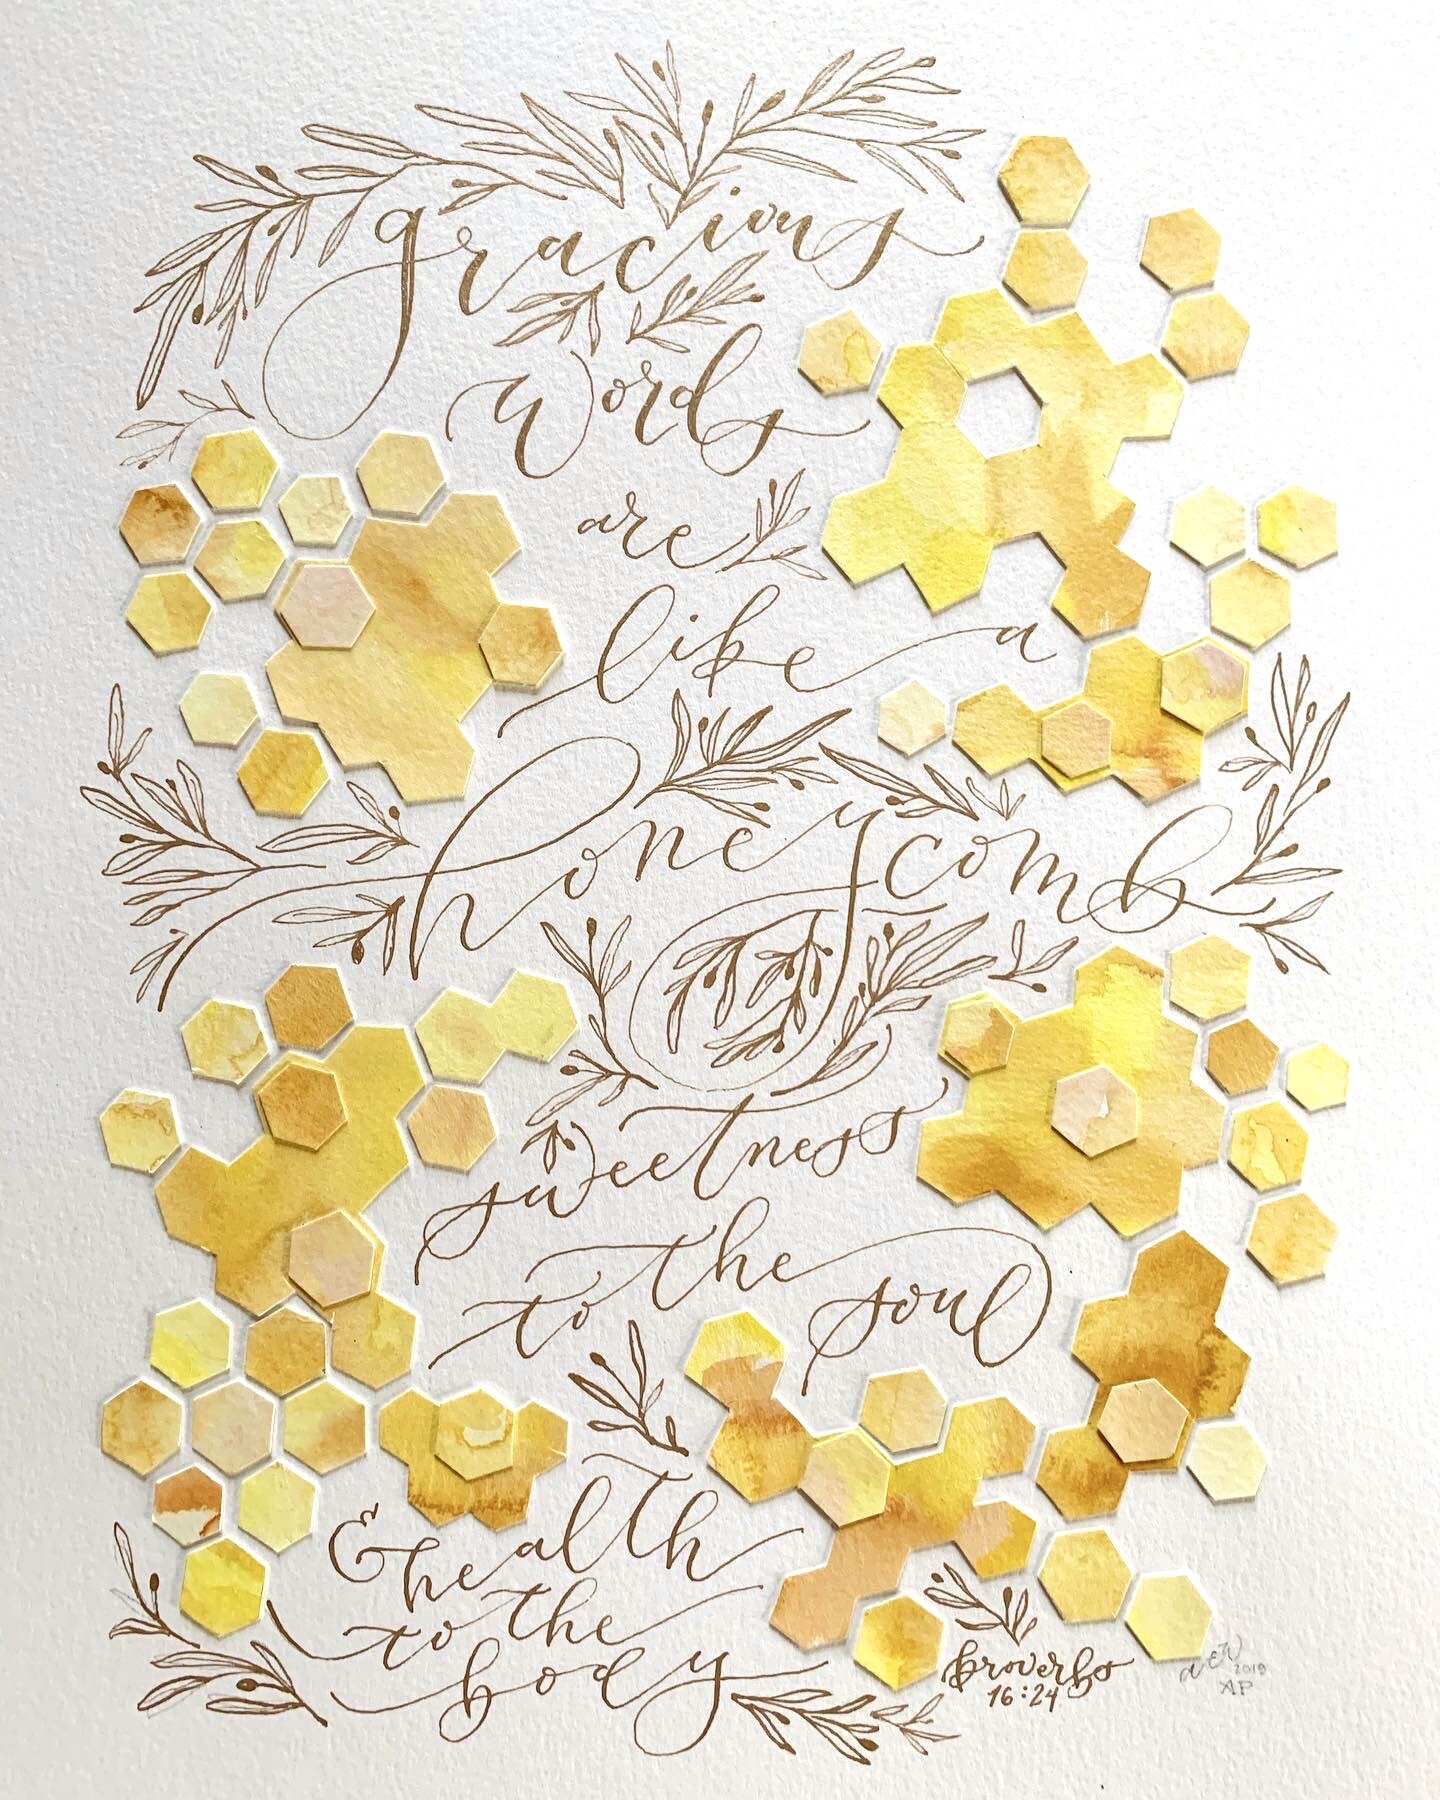 gracious
words
are
like a
honeycomb
sweetness
to the soul
& health
to the
body
Proverbs
16:24
2019
AP